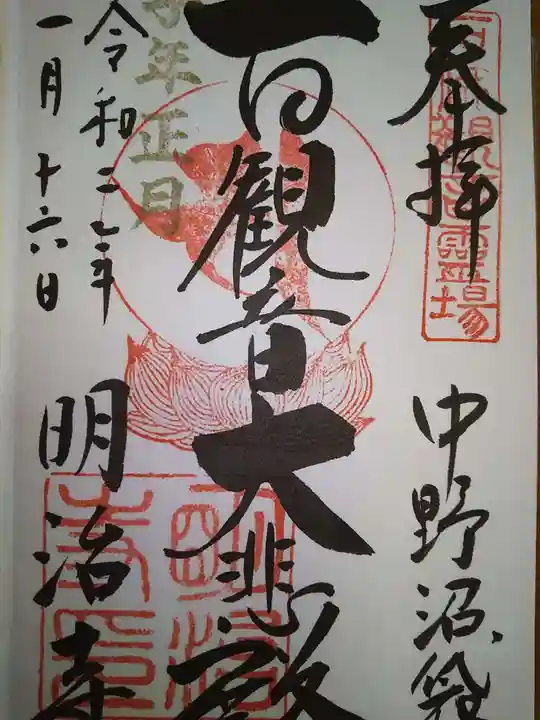 奉拝
百観音霊場
中野沼袋
百観音大悲殿
子年正月
令和二年
一月十六日
明治寺
明治寺印